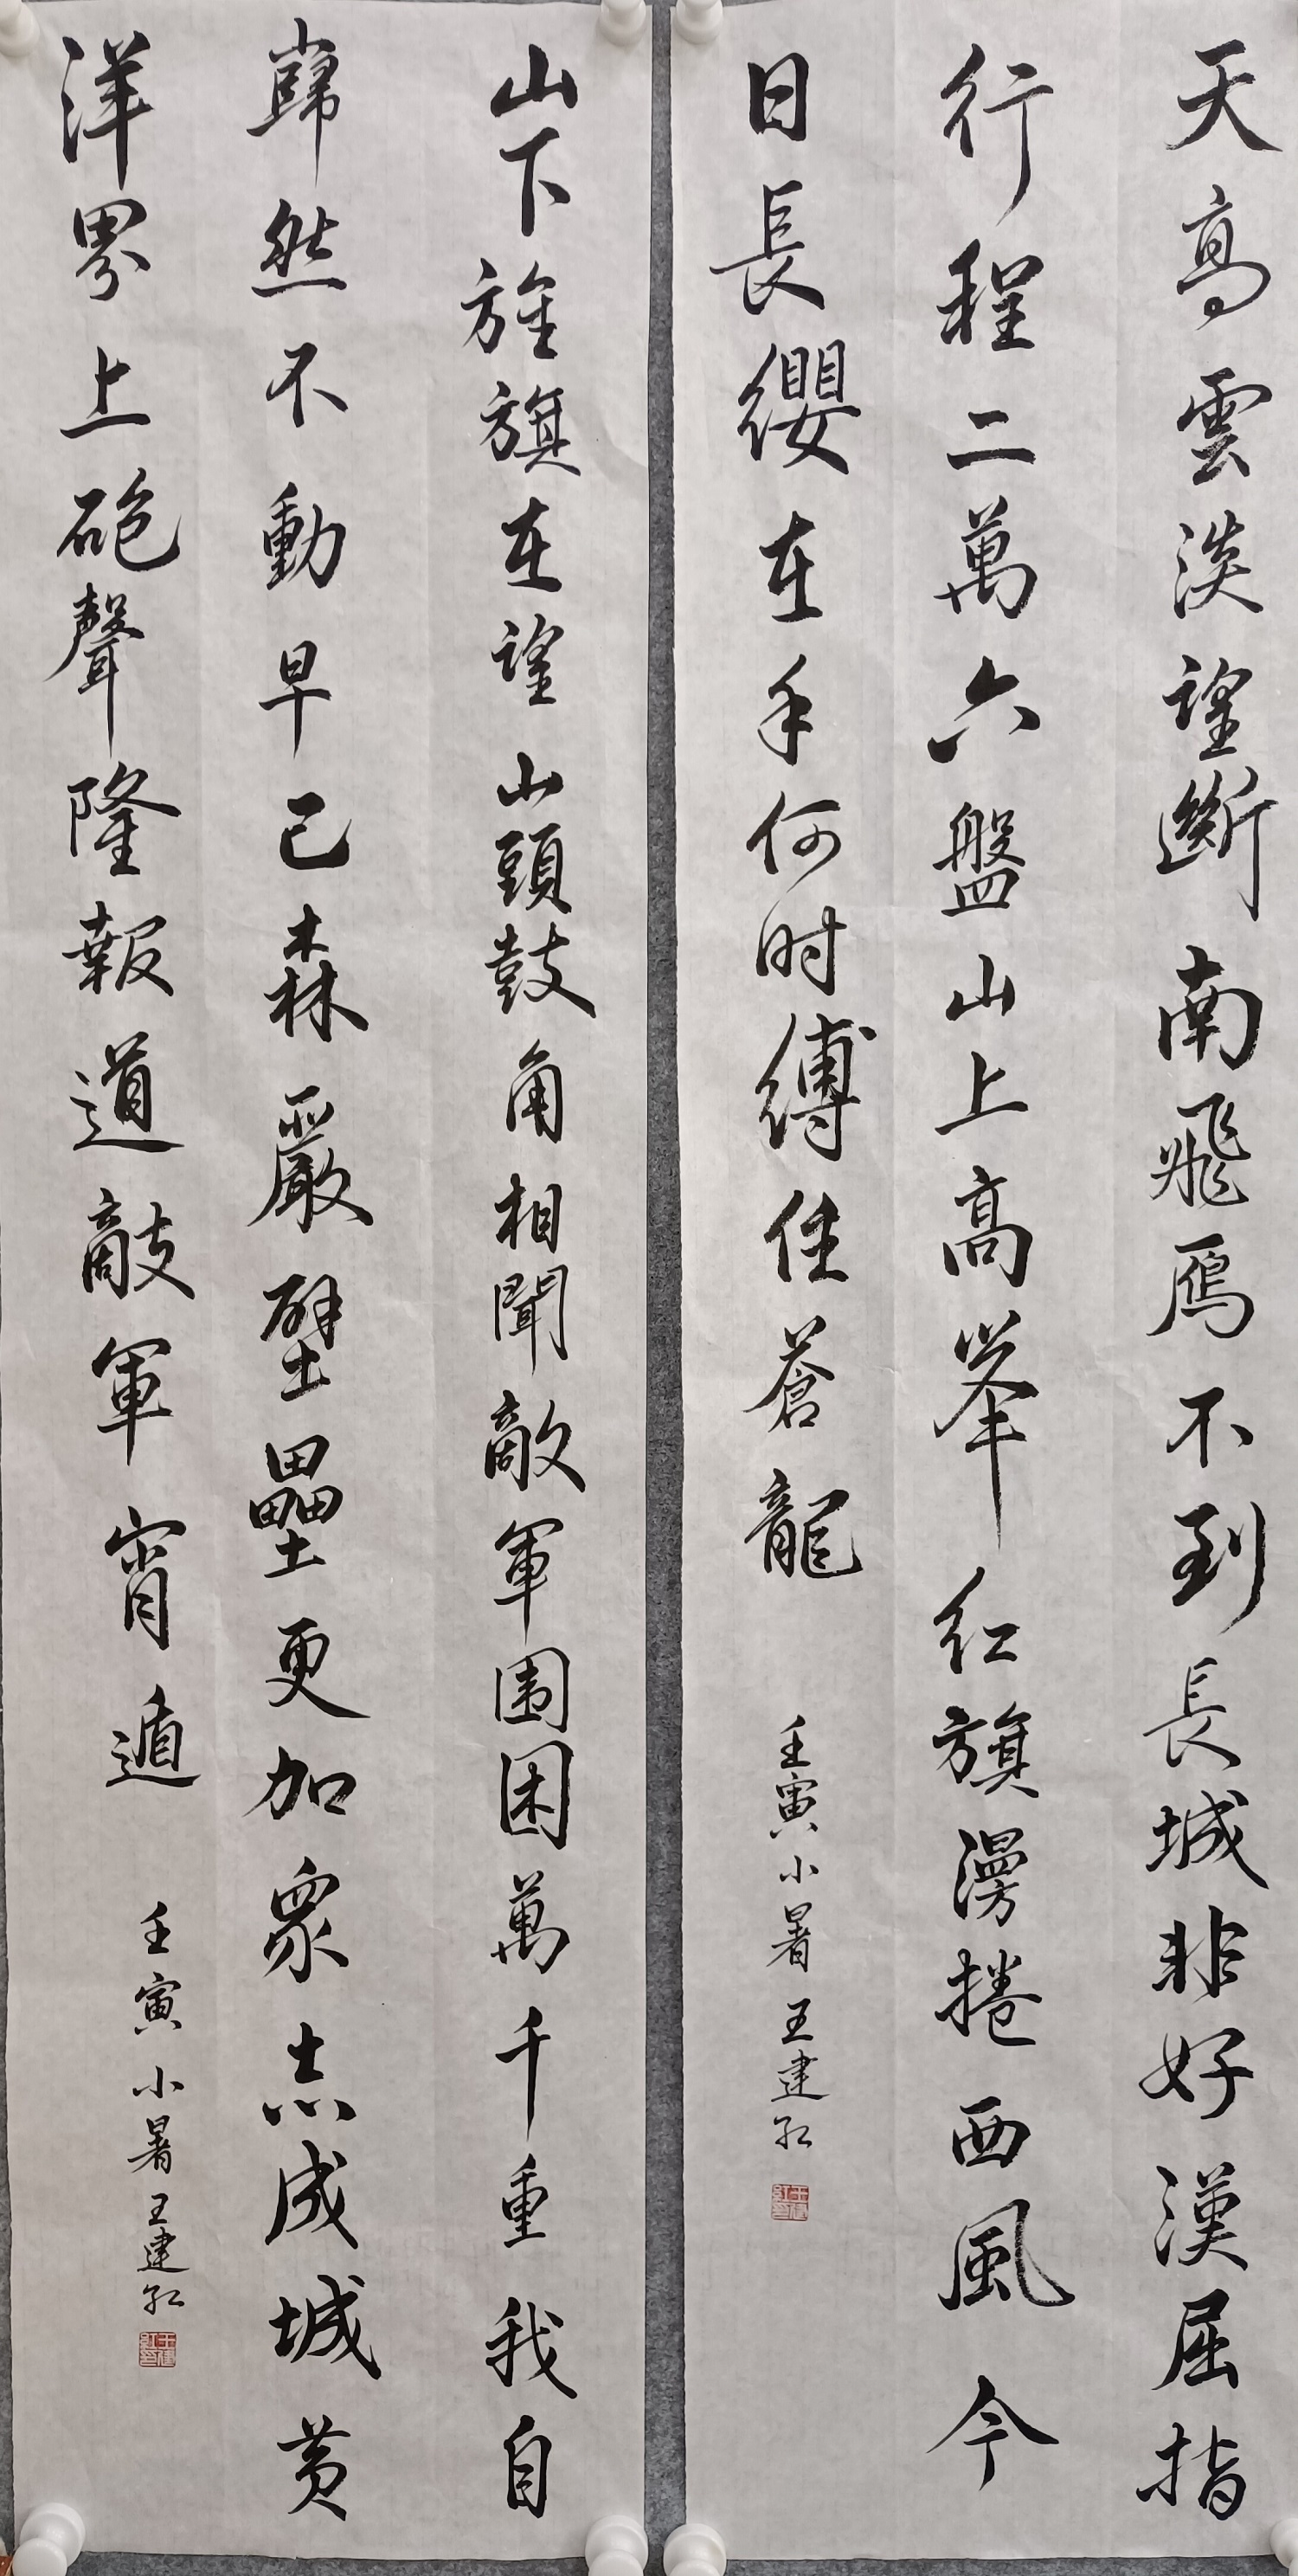 天高雲淡望斷南飛鴈不到長城非好漢屈指
行程二萬六盤山上高峯红旗漫捲西風今
日長纓在手何时縛住蒼龍
壬寅小暑王建红
山下旌旗在望山頭鼓角相聞敵軍围困萬千重我自
巋然不動早已森嚴壁壘更加眾志成城黄
洋界上砲聲隆報道敵軍宵遁
壬寅小暑王建红